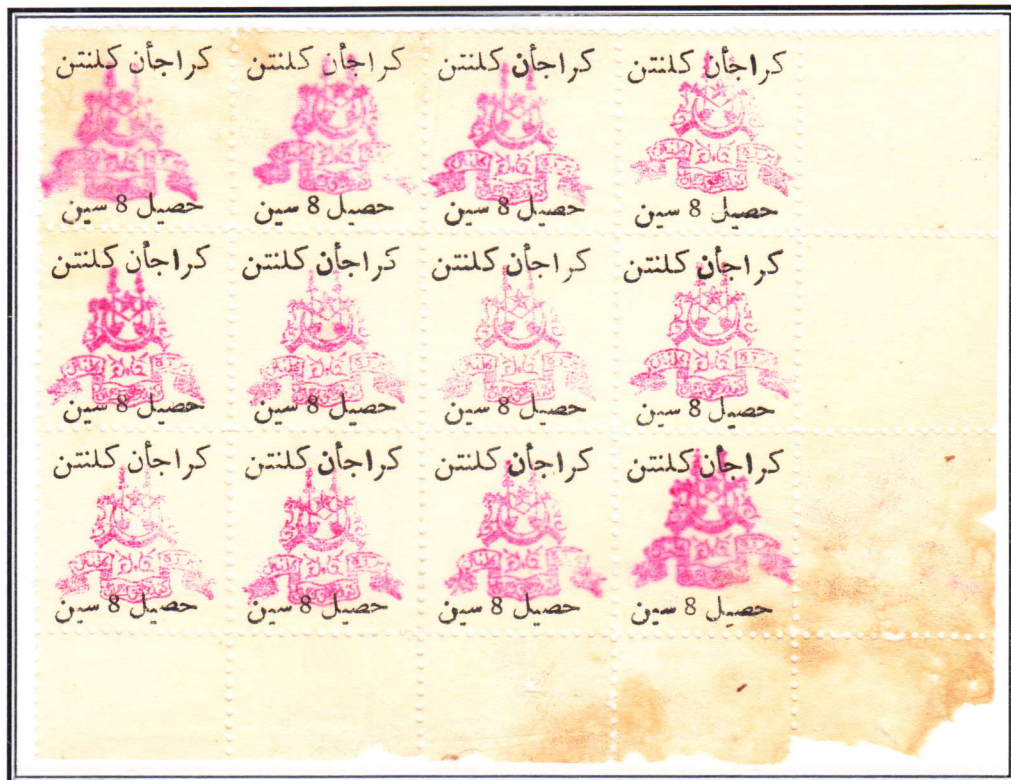 كراجأن كلنتن
حصيل 8 سين
كراجأن كلنتن
حصيل 8 سين
كراجأن كلنتن
حصيل 8 سين
كراجأن كلنتن
حصيل 8 سين
كراجأن كلنتن
حصيل 8 سين
كراجأن كلنتن
حصيل 8 سين
كراجأن كلنتن
حصيل 8 سين
كراجأن كلنتن
حصيل 8 سين
كراجأن كلنتن
حصيل 8 سين
كراجأن كلنتن
حصيل 8 سين
كراجأن كلنتن
حصيل 8 سين
كراجأن كلنتن
حصيل 8 سين